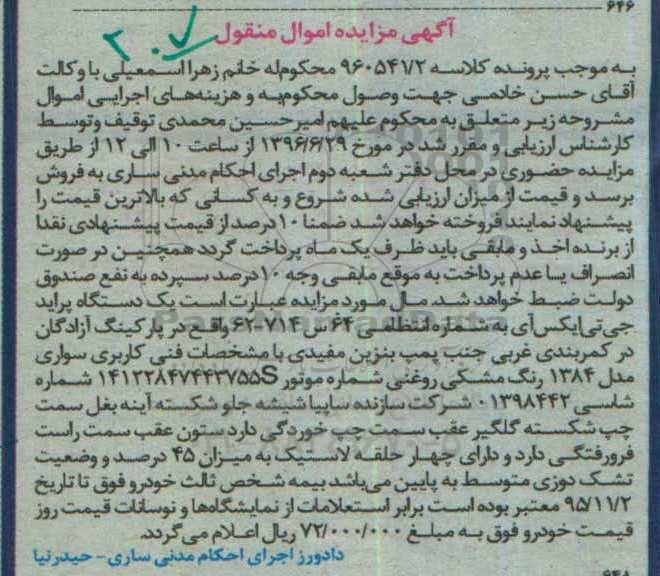 ۶۴۶
آگهی مزایده اموال منقول
۲۰
به موجب پرونده کلاسه ۹۶۰۵۴۱/۲ محکوم‌له خانم زهرا اسمعیلی با وکالت
آقای حسن خادمی جهت وصول محکوم‌به و هزینه‌های اجرایی اموال
مشروحه زیر متعلق به محکوم علیهم امیرحسین محمدی توقیف وتوسط
کارشناس ارزیابی و مقرر شد در مورخ ۱۳۹۶/۶/۲۹ از ساعت ۱۰ الی ۱۲ از طریق
مزایده حضوری در محل دفتر شعبه دوم اجرای احکام مدنی ساری به فروش
برسد و قیمت از میزان ارزیابی شده شروع و به کسانی که بالاترین قیمت را
پیشنهاد نمایند فروخته خواهد شد ضمنا ۱۰درصد از قیمت پیشنهادی نقدا
از برنده اخذ و مابقی باید ظرف یک‌ماه پرداخت گردد همچنین در صورت
انصراف یا عدم پرداخت به موقع مابقی وجه ۱۰درصد سپرده به نفع صندوق
دولت ضبط خواهد شد. مال مورد مزایده عبارت است یک دستگاه پراید
جی‌تی‌ایکس‌آی به شماره انتظامی ۶۴س ۷۱۴-۶۲ واقع در پارکینگ آزادگان
در کمربندی غربی جنب پمپ بنزین مفیدی با مشخصات فنی کاربری سواری
مدل ۱۳۸۴ رنگ مشکی روغنی شماره موتور ۱۴۱۲۲۸۴۷۴۴۳۷۵۵S شماره
شاسی ۰۱۳۹۸۴۴۲ شرکت سازنده سایپا شیشه جلو شکسته آینه بغل سمت
چپ شکسته گلگیر عقب سمت چپ خوردگی دارد ستون عقب سمت راست
فرورفتگی دارد و دارای چهار حلقه لاستیک به میزان ۴۵ درصد و وضعیت
تشک دوزی متوسط به پایین می‌باشد بیمه شخص ثالث خودرو فوق تا تاریخ
۹۵/۱۱/۲ معتبر بوده است برابر استعلامات از نمایشگاه‌ها و نوسانات قیمت روز
قیمت خودرو فوق به مبلغ ۷۲/۰۰۰/۰۰۰ ریال اعلام می‌گردد.
دادورز اجرای احکام مدنی ساری- حیدرنیا
۶۴۸